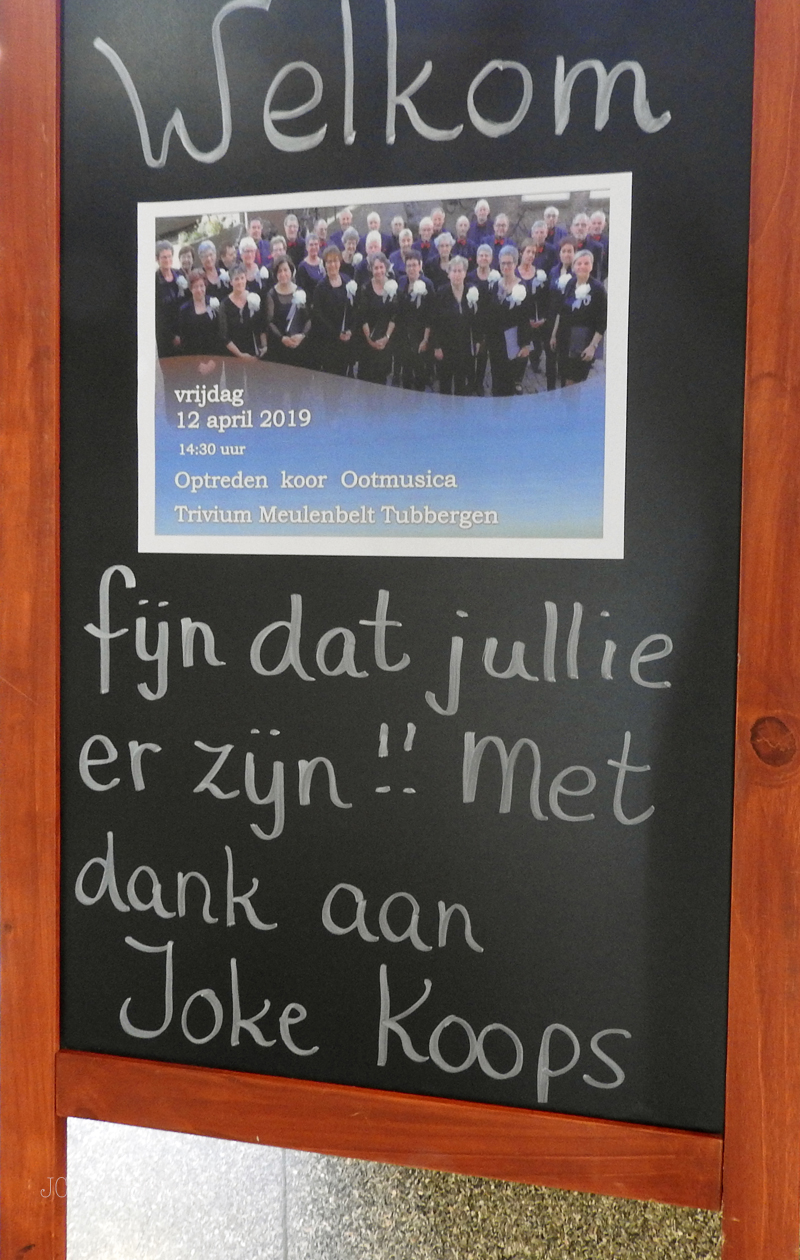 Welkom
vrijdag
12 april 2019
14:30 uur
Optreden koor Ootmusica
Trivium Meulenbelt Tubbergen
fijn dat jullie
er zijn!! Met
dank aan
Joke Koops
JC